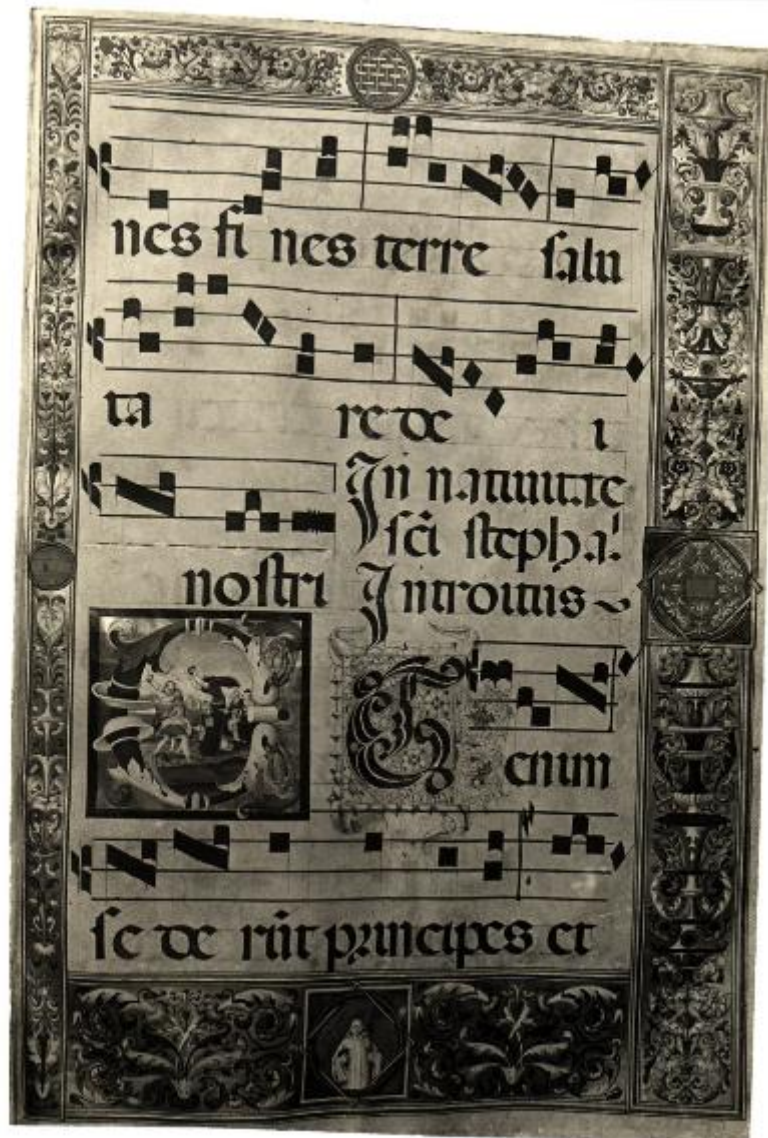 nes fi nes terre salu
ta re de i
In natiuitate
sc̄i stepha.
nostri Introitus
Et enim
se de rūt principes et